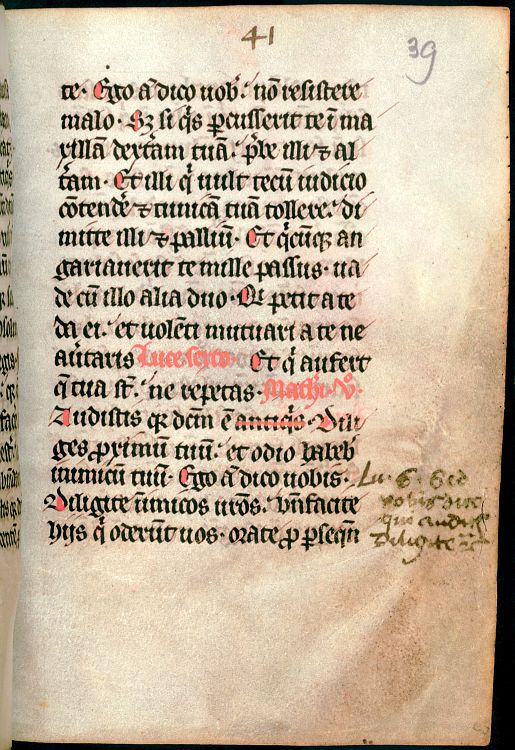 41
39
te· Ego aū dico uob᷒· nō resistere
malo· Sꝫ si q̄s ꝑcusserit te ī ma
xillā dext̄am tuā· p̄be illi ⁊ al
t̄am· Et illi q̄ uult tecū iudicio
cōtend̄e ⁊ tunicā tuā tollere· di
mitte illi ⁊ palliū· Et q̄cūqꝫ an
gariauerit te mille passus· ua
de cū illo alia duo· Qi petit a te
da ei· et uolēti mutuari a te ne
au̇taris Luce sexto· Et q̄ aufert
q̄ tua st̄· ne repetas· Mathi· V·
Audistis qꝛ dcm̄ ē antiq̄s· Dili
ges ꝓximum tuū· et odio habeb᷒
inimicū tuū· Ego aū dico uobis·
Diligite inīmicos ur̄os· bn̄facite
hijs q̄ oderūt uos· orate ꝓ ꝑseqn̄
Lu· 6· Sed
uobis dico
qui auditis
Diligite